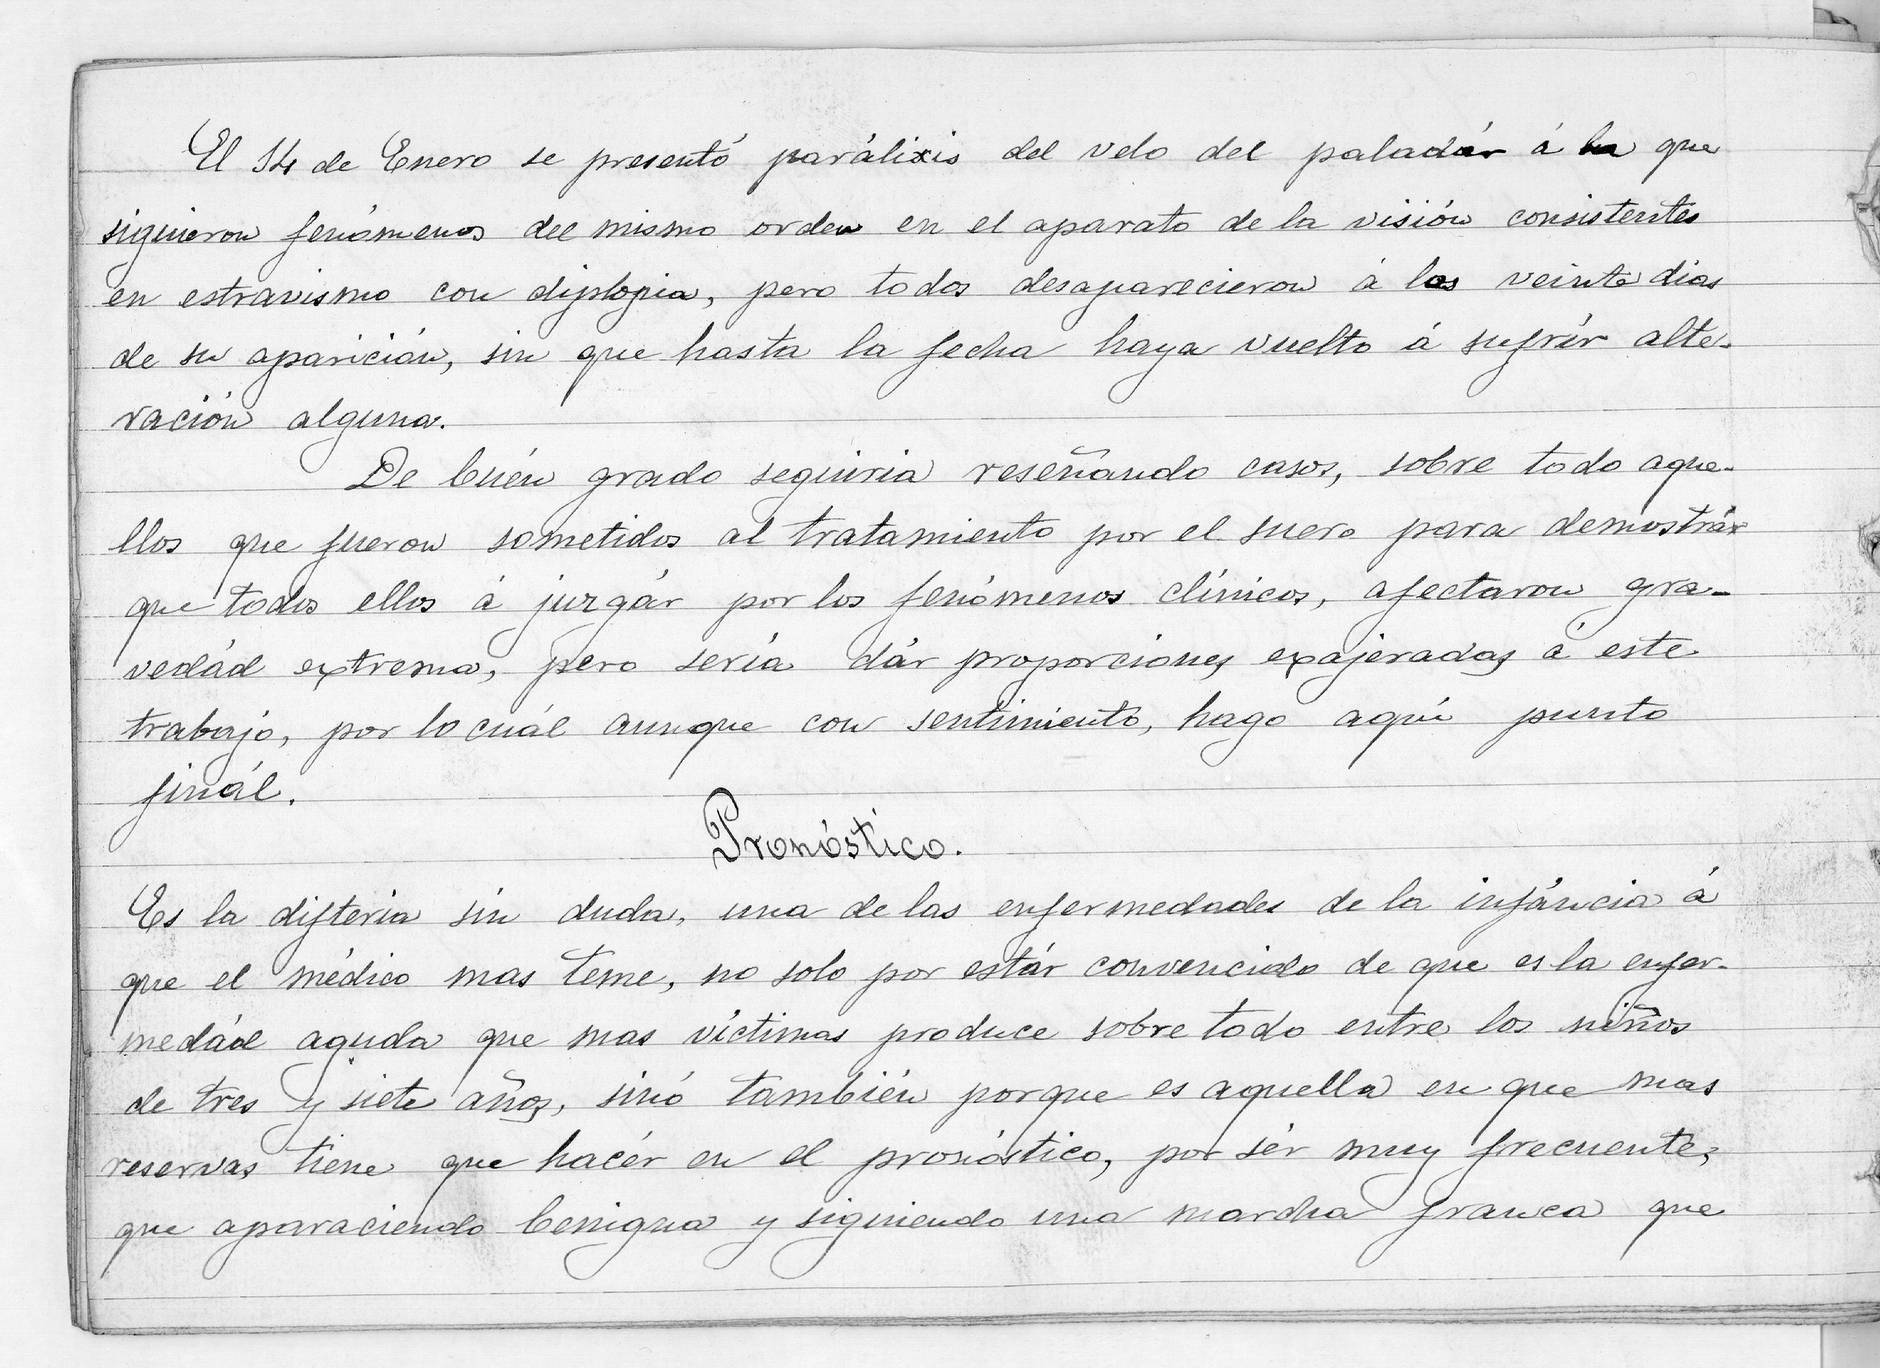 El 14 de Enero se presentó parálixis del velo del paladár á la que
siguieron fenómenos del mismo orden en el aparato de la visión consistentes
en estravismo con diplopia, pero todos desaparecieron á los veinte dias
de su aparición, sin que hasta la fecha haya vuelto á sufrir alte-
ración alguna.
De buén grado seguiria reseñando casos, sobre todo aque-
llos que fueron sometidos al tratamiento por el suero para demostrár
que todos ellos á juzgár por los fenómenos clínicos, afectaron gra-
vedád extrema, pero sería dár proporciones exajeradas á este
trabajo, por lo cuál aunque con sentimiento, hago aquí punto
finál.
Pronóstico.
Es la difteria sin duda, una de las enfermedades de la infáncia á
que el médico mas teme, no solo por estár convencido de que es la enfer-
medád aguda que mas víctimas produce sobre todo entre los niños
de tres y siete años, sinó también porque es aquella en que mas
reservas tiene que hacér en el pronóstico, por sér muy frecuente,
que aparaciendo benigna y siguiendo una marcha franca que